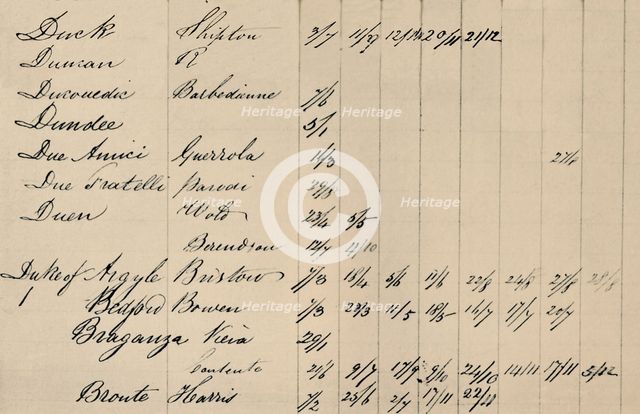 Duck Shipton 3/7 11/9 12/11 20/11 21/12
Duncan R
Ducouedic Barbedienne 7/6
Dundee 5/1
Due Amici Guerrola 14/3 27/4
Due Fratelli Parodi 29/3
Duen Wold 23/4 5/5
Berendson 12/7 4/10
Duke of Argyle Bristow 7/3 18/4 5/6 13/6 22/8 24/8 27/8 28/8
Bedford Bowen 7/3 23/3 11/5 18/5 14/7 17/7 20/7
Braganza Vieia 29/1
Contente 21/6 9/7 17/9 9/10 24/10 14/11 17/11 3/12
Bronte Harris 7/2 25/6 2/7 17/11
Heritage Heritage Heritage
Heritage Heritage Heritage
Heritage Heritage Heritage